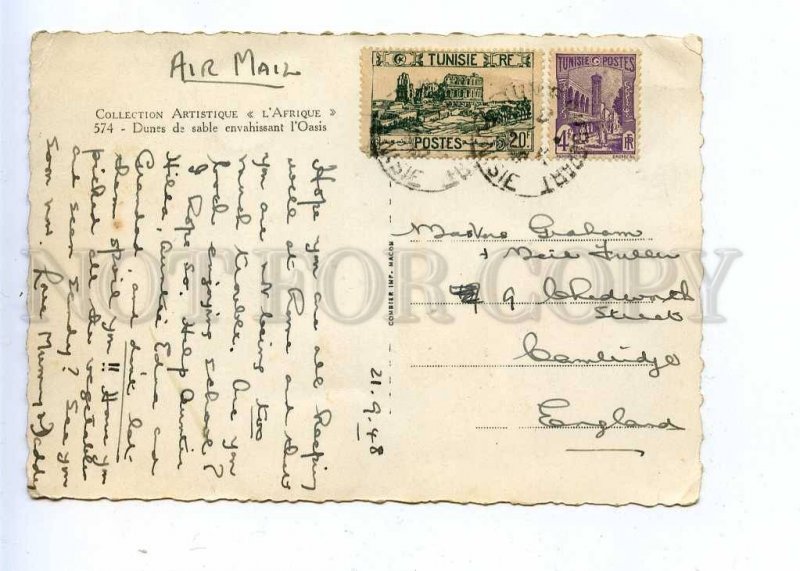 AIR MAIL
TUNISIE RF
POSTES 20F
TUNISIE POSTES
4F
RF
COLLECTION ARTISTIQUE « L'AFRIQUE »
574 - Dunes de sable envahissant l'Oasis
COMBIER IMP. MACON
Hope you are all keeping
well at home and that
you are not being too
much trouble. Are you
both enjoying school?
I hope so. Help Auntie
Hilda, Auntie Edna and
Grandad, and don't let
them spoil you!! Have you
picked all the vegetables
and seen Judy? See you
soon now. Love Mummy & Daddy
21.9.48
Masters Graham
+ Neil Fuller
9 Chedworth
Street
Cambridge
England
NOT FOR COPY